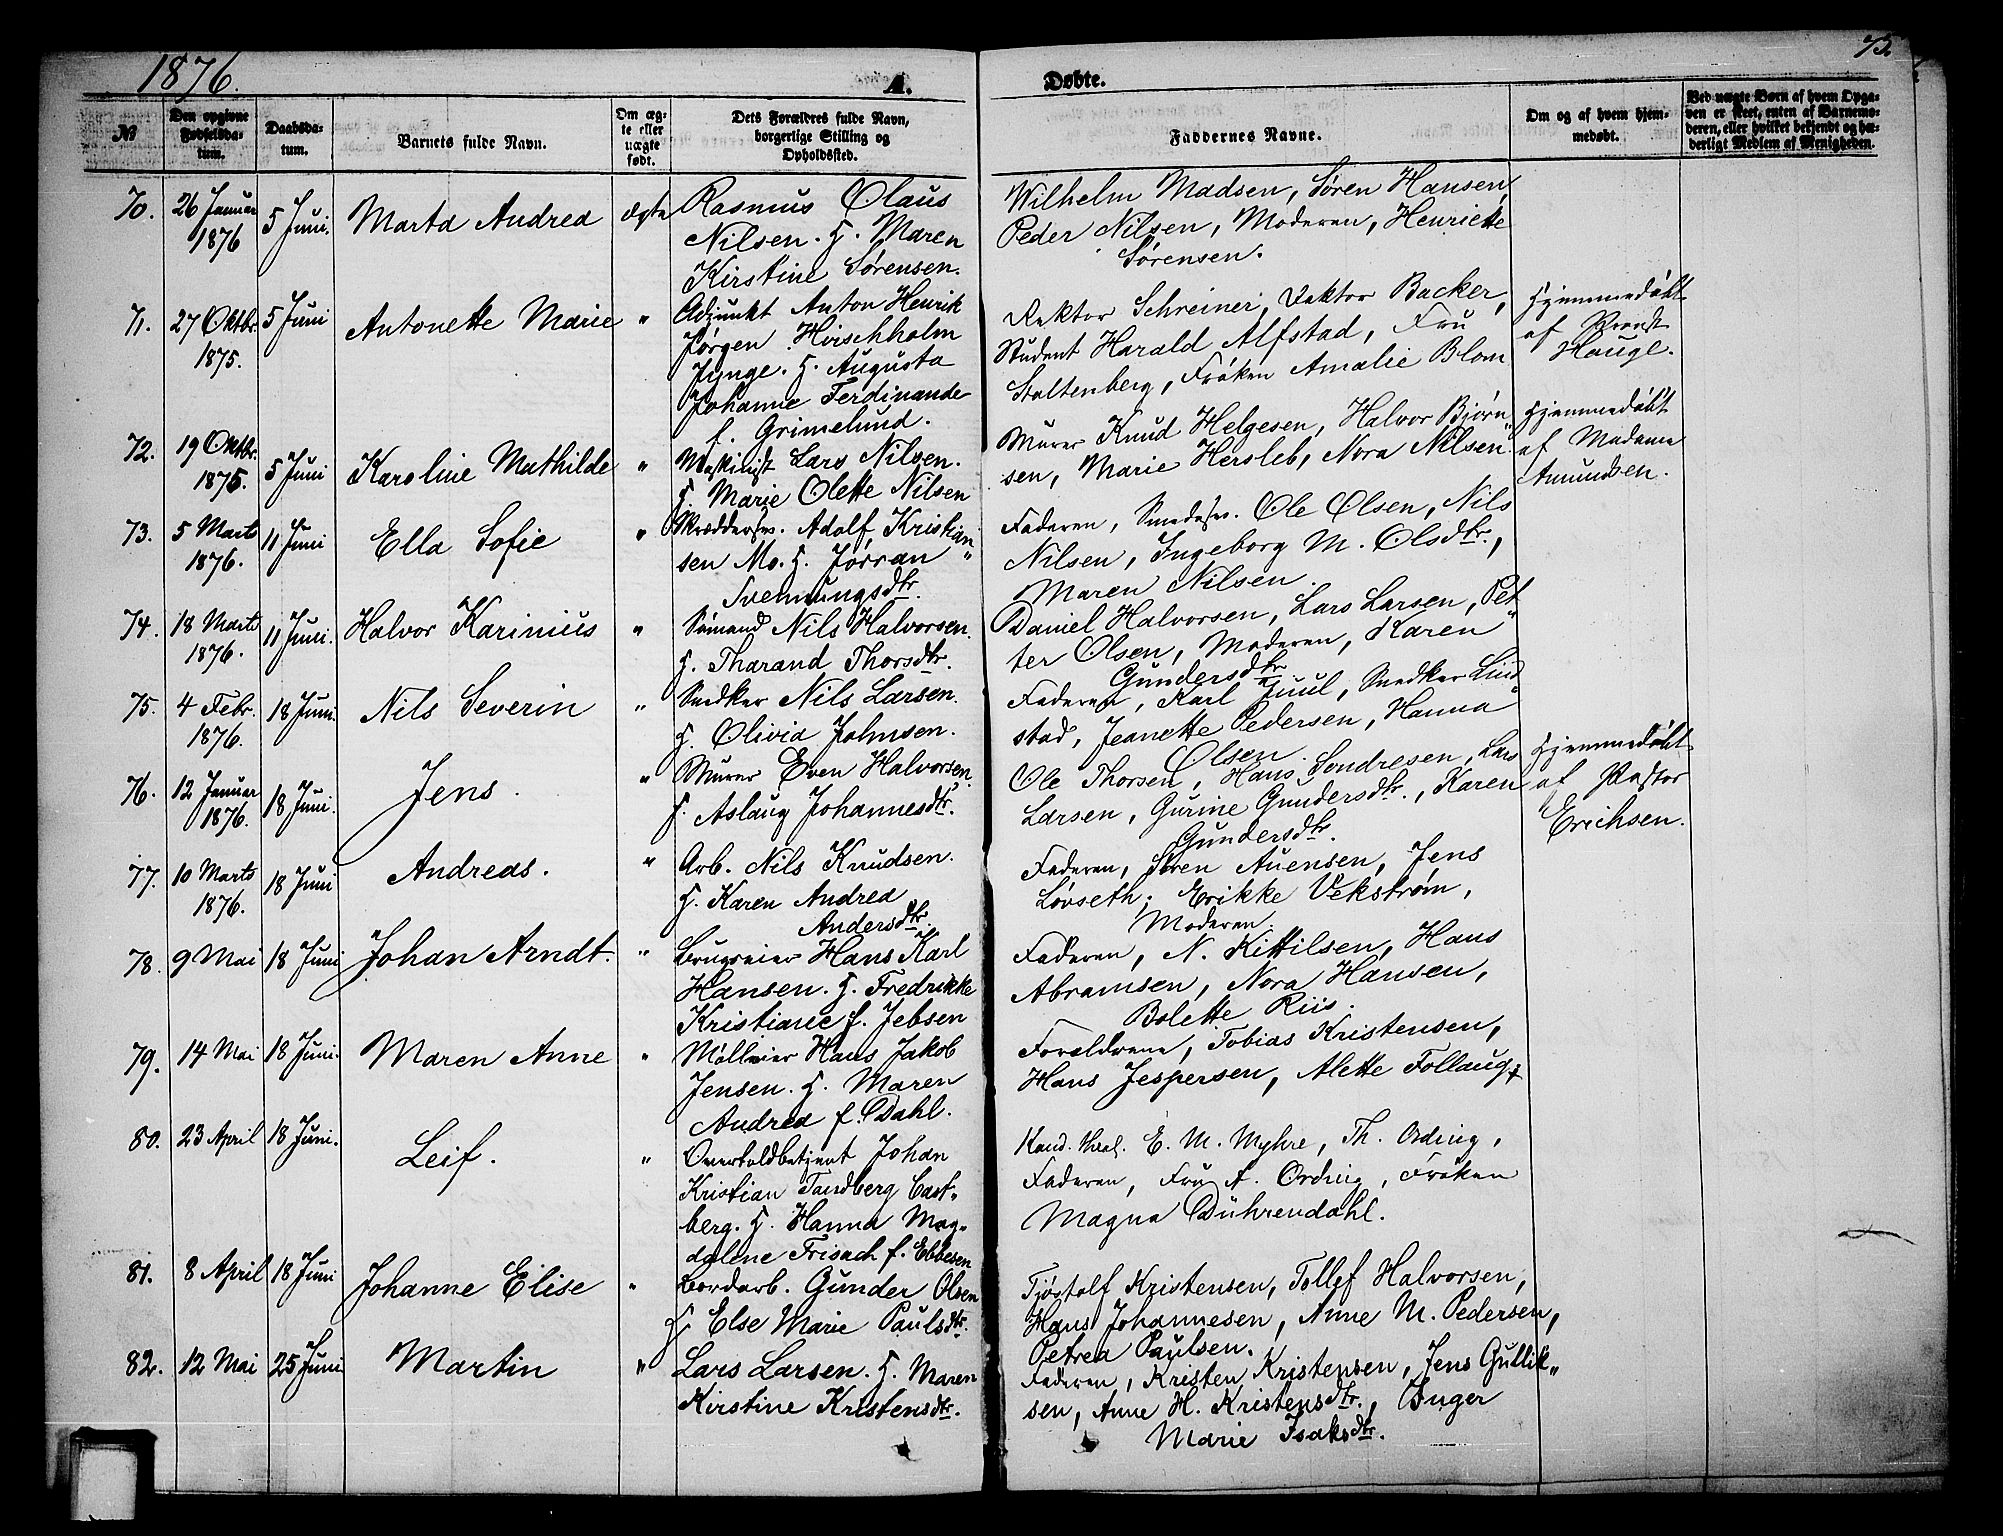 1876.
A.
Døbte.
75.
№
Den opgivne Fødselsdatum.
Daabsdatum.
Barnets fulde Navn.
Om ægte eller uægte født.
Dets Forældres fulde Navn, borgerlige Stilling og Opholdssted.
Faddernes Navne.
Om og af hvem hjemmedøbt.
Ved uægte Børn af hvem Opgaven er skeet, enten af Barnemoderen, eller hvilket bekjendt og hæderligt Medlem af Menigheden.
70. 26 Januar 1876 5 Juni. Marta Andrea ægte
Rasmus Olaus
Nilsen. H. Maren
Kirstine Sørensen.
Wilhelm Madsen, Søren Hansen,
Peder Nilsen, Moderen, Henriette
Sørensen.
71. 27 Oktbr. 1875. 5 Juni Antonette Marie "
Adjunkt Anton Henrik
Jørgen Hirschholm
Jynge. H. Augusta
Johanne Ferdinande
f. Grimelund.
Rektor Schreiner, Doktor Backer,
Student Harald Alfstad, Fru
Stoltenberg, Frøken Amalie Blom
Hjemmedøbt
af Provst
Hauge.
72. 19 Oktbr. 1875. 5 Juni Karoline Mathilde "
Maskinist Lars Nilsen.
H. Marie Olette Nilsen
Murer Knud Helgesen, Halvor Bjørn"
sen, Marie Hersleb, Nora Nilsen
Hjemmedøbt
af Madame
Amundsen.
73. 5 Marts 1876. 11 Juni Ella Sofie "
Skræddersv. Adolf Kristian"
sen Mo. H. Jørran
Svennungsdtr.
Faderen, Smedesv. Ole Olsen, Nils
Nilsen, Ingeborg M. Olsdtr.,
Maren Nilsen.
74. 18 Marts 1876. 11 Juni. Halvor Karinius "
Sømand Nils Halvorsen.
H. Tharand Thorsdtr.
Daniel Halvorsen, Lars Larsen, Pet"
ter Olsen, Moderen, Karen
Gundersdtr.
75. 4 Febr. 1876. 18 Juni. Nils Severin "
Snedker Nils Larsen.
H. Olivia Johnsen.
Faderen, Karl Juul, Snedker Lind"
stad, Jeanette Pedersen, Hanna
Olsen.
76. 12 Januar 1876. 18 Juni. Jens. "
Murer Even Halvorsen.
H. Aslaug Johannesdtr.
Ole Thorsen, Hans Sondresen, Lars
Larsen, Gurine Gundersdtr., Karen
Gundersdtr.
Hjemmedøbt
af Pastor
Erichsen.
77. 10 Marts 1876. 18 Juni Andreas. "
Arb. Nils Knudsen.
H. Karen Andrea
Andersdtr.
Faderen, Søren Auensen, Jens
Løvseth, Erikke Vekstrøm,
Moderen
78. 9 Mai 18 Juni Johan Arndt. "
Brugseier Hans Karl
Hansen. H. Fredrikke
Kristiane f. Jebsen
Faderen, N. Kittilsen, Hans
Abramsen, Nora Hansen,
Bolette Riis.
79. 14 Mai 18 Juni. Maren Anne "
Mølleeier Hans Jakob
Jensen. H. Maren
Andrea f. Dahl.
Foreldrene, Tobias Kristensen,
Hans Jespersen, Alette Follaug.
80. 23 April 18 Juni. Leif. "
Overtoldbetjent Johan
Kristian Tandberg Cast"
berg. H. Hanna Mag"
dalene Frisach f. Ebbesen
Kand. theol. E. M. Myhre, Th. Ording,
Faderen, Fru A. Ording, Frøken
Magna Dührendahl.
81. 8 April 18 Juni Johanne Elise "
Bordarb. Gunder Olsen
H. Else Marie Paulsdtr.
Tjøstolf Kristensen, Tollef Halvorsen,
Hans Johannesen, Anne M. Pedersen,
Petrea Paulsen.
82. 12 Mai 25 Juni Martin "
Lars Larsen. H. Maren
Kirstine Kristensdtr.
Faderen, Kristen Kristensen, Jens Gullik"
sen, Anne H. Kristensdtr., Inger
Marie Isaksdtr.